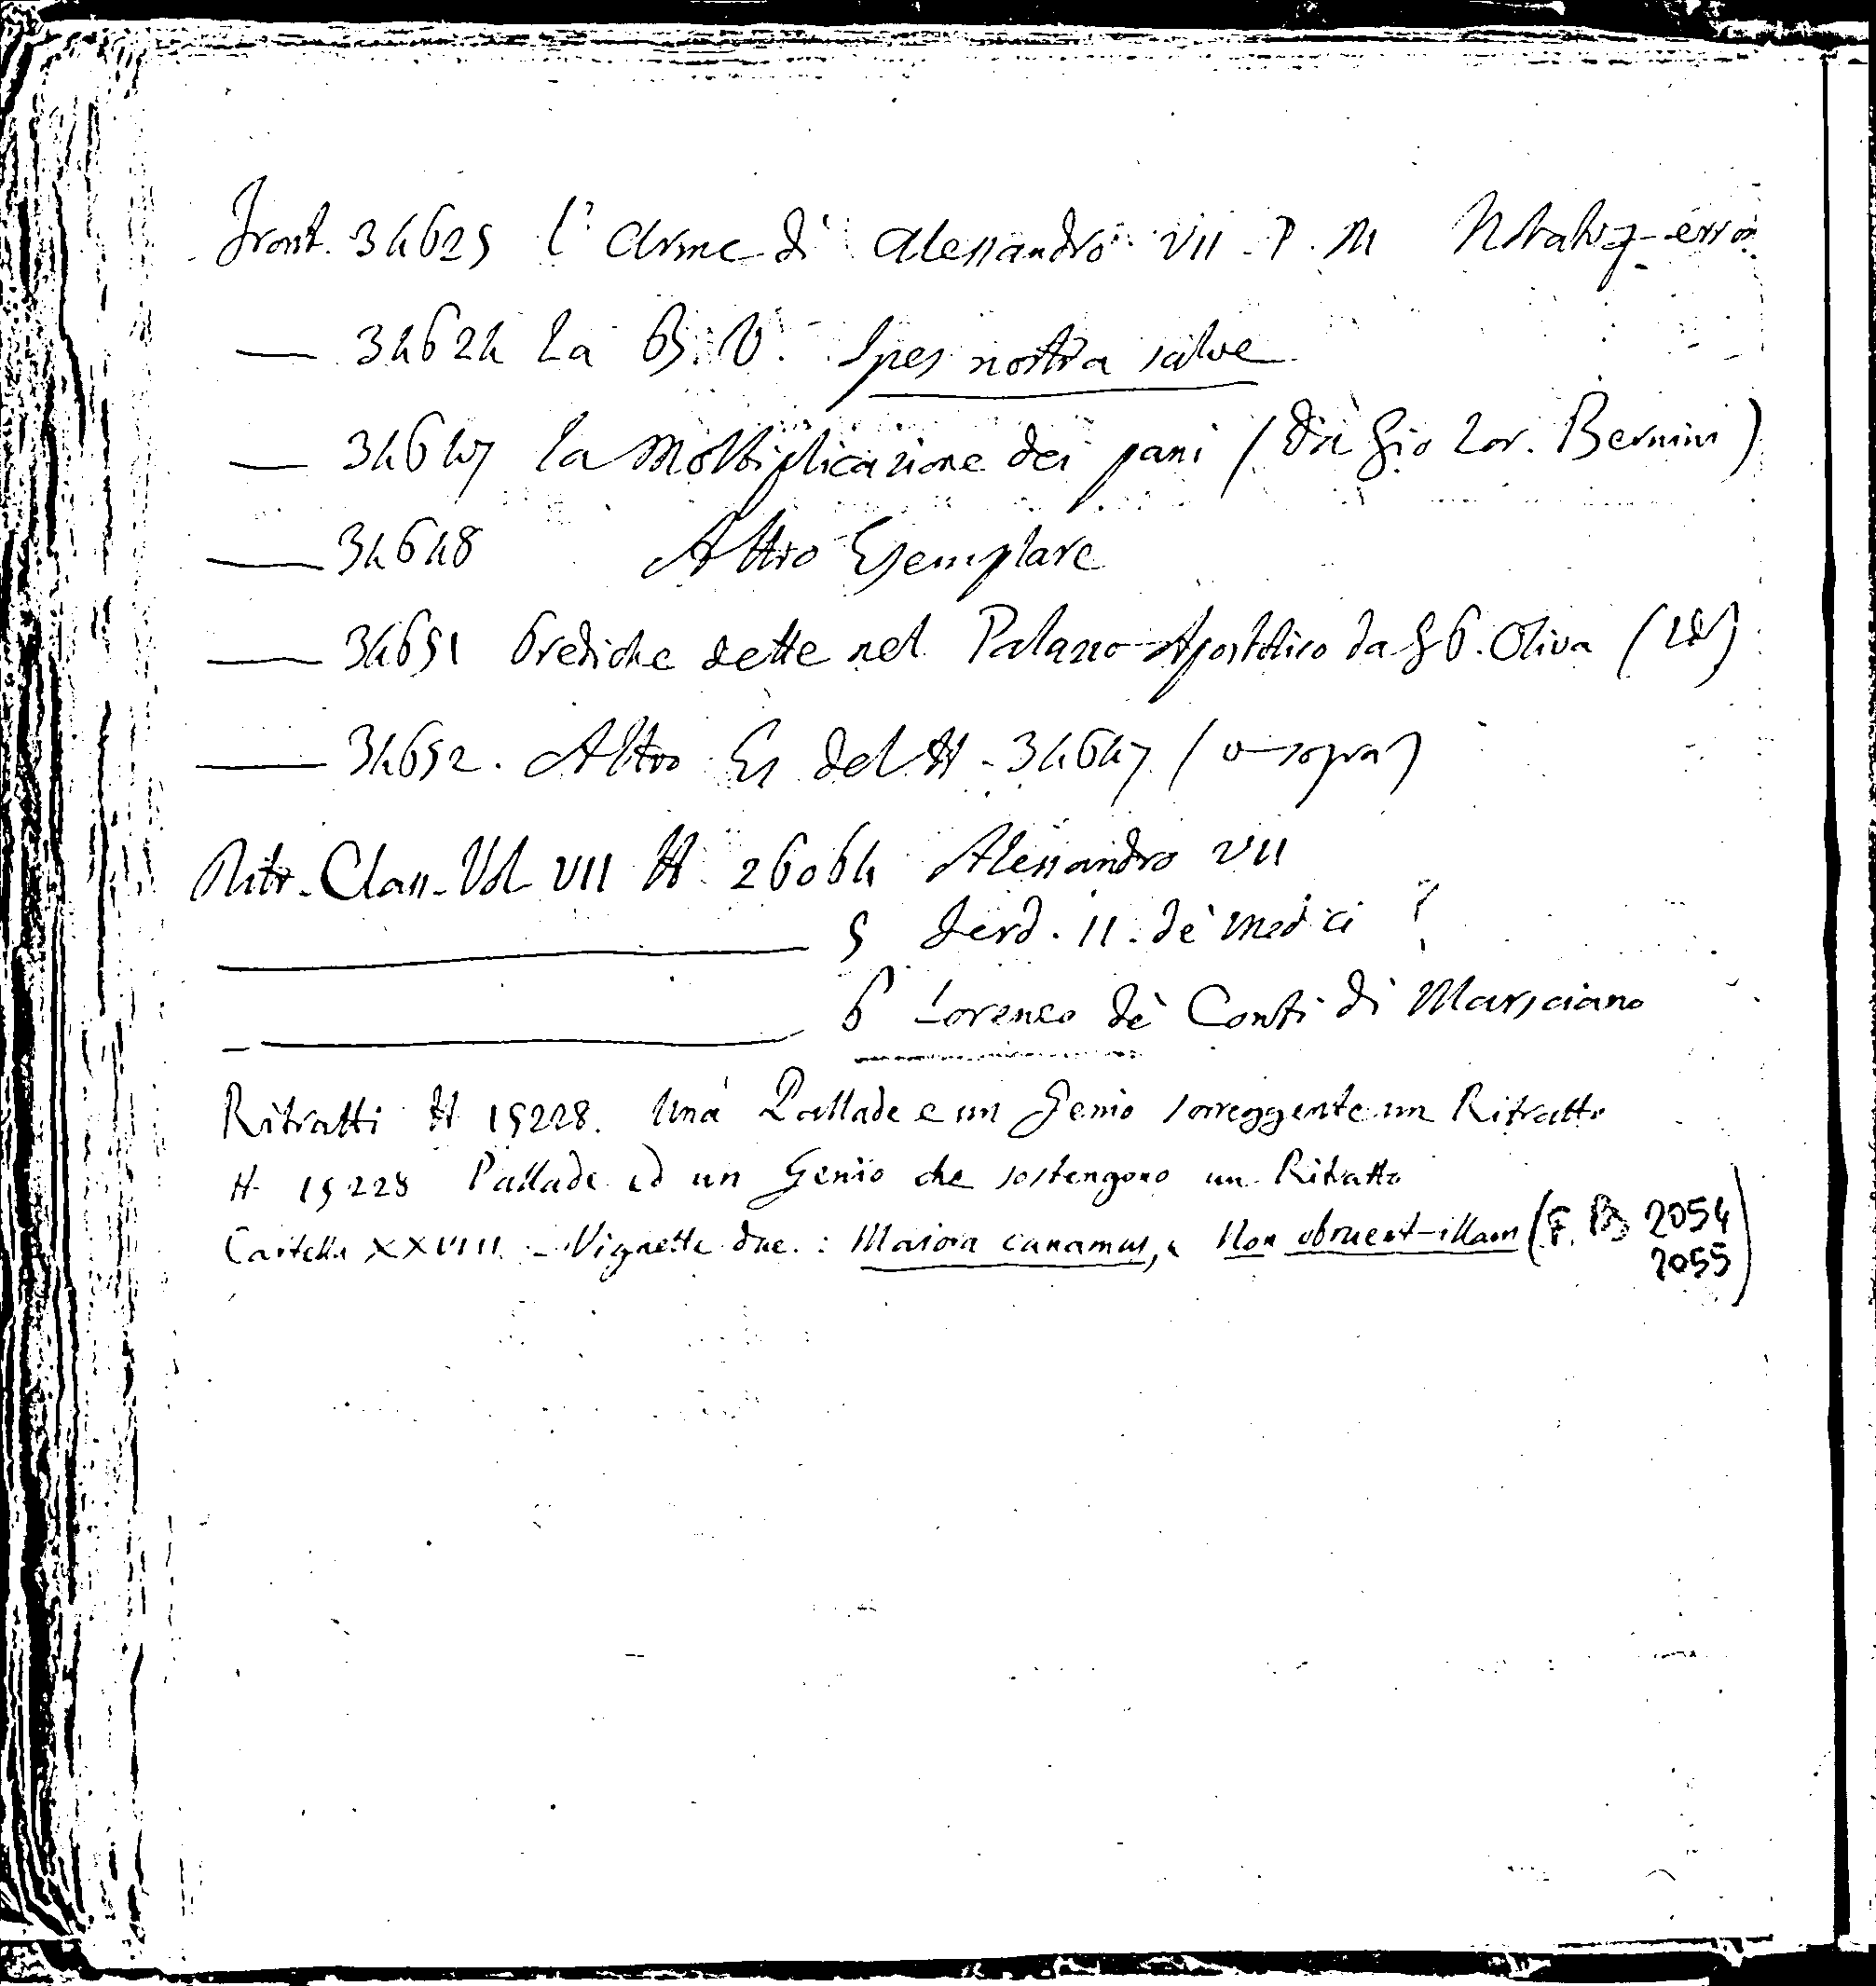 Front. 34625 l'Arme di Alessandro VII P. M
— 34624 La B. V. Spes nostra salve
— 34647 La Moltiplicazione dei pani (di Gio Lor. Bernini)
— 34648 Altro Esemplare
— 34651 Prediche dette nel Palazzo Apostolico da G P. Oliva (id)
— 34652. Altro Es del N. 34647 (v sopra)
Ritr. Class. Vol VII N. 26064 Alessandro VII
— 5 Ferd. II. de' Medici ?
— 6 Lorenzo de' Conti di Marsciano
Ritratti N 15228. Una Pallade e un Genio sorreggente un Ritratto
N. 15228 Pallade ed un Genio che sostengono un Ritratto
Cartella XXVIII - Vignette due : Maiora canamus, e Non obruent illam (F. B 2054
2055)